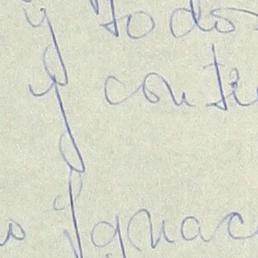 y todos
y conti
o Ignac